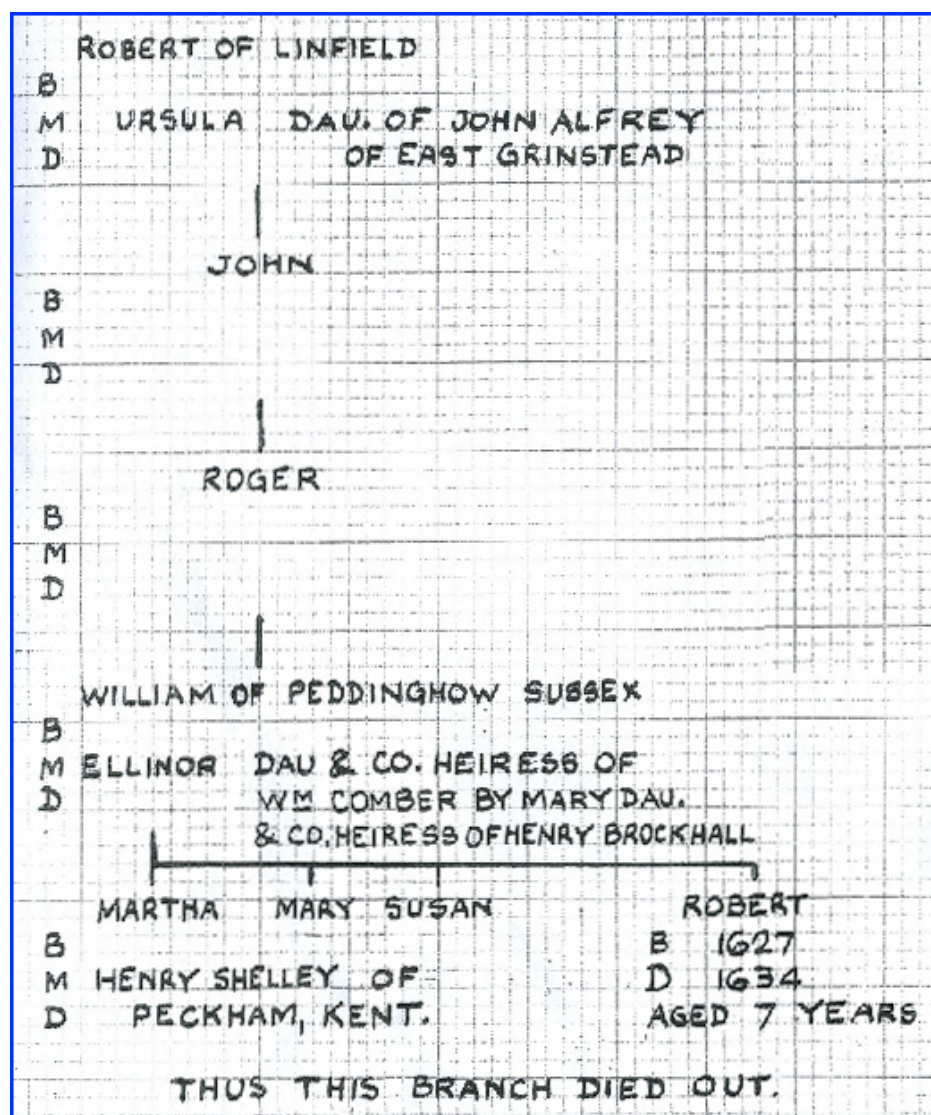 ROBERT OF LINFIELD
B
M URSULA DAU. OF JOHN ALFREY
D OF EAST GRINSTEAD
JOHN
B
M
D
ROGER
B
M
D
WILLIAM OF PEDDINGHOW SUSSEX
B
M ELLINOR DAU & CO. HEIRESS OF
D WM COMBER BY MARY DAU.
& CO. HEIRESS OF HENRY BROCKHALL
MARTHA MARY SUSAN ROBERT
B B 1627
M HENRY SHELLEY OF D 1634
D PECKHAM, KENT. AGED 7 YEARS
THUS THIS BRANCH DIED OUT.